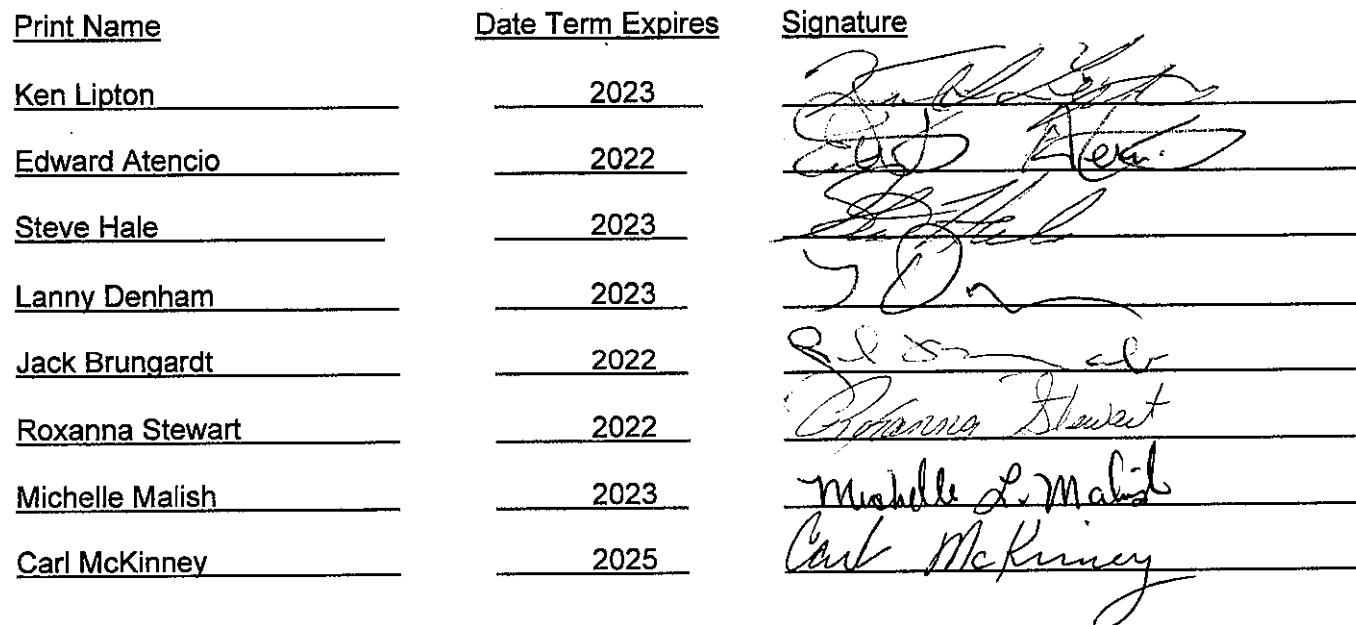 Print Name Date Term Expires Signature
Ken Lipton 2023
Edward Atencio 2022
Steve Hale 2023
Lanny Denham 2023
Jack Brungardt 2022
Roxanna Stewart 2022 Roxanna Stewart
Michelle Malish 2023 Michelle L. Malish
Carl McKinney 2025 Carl McKinney